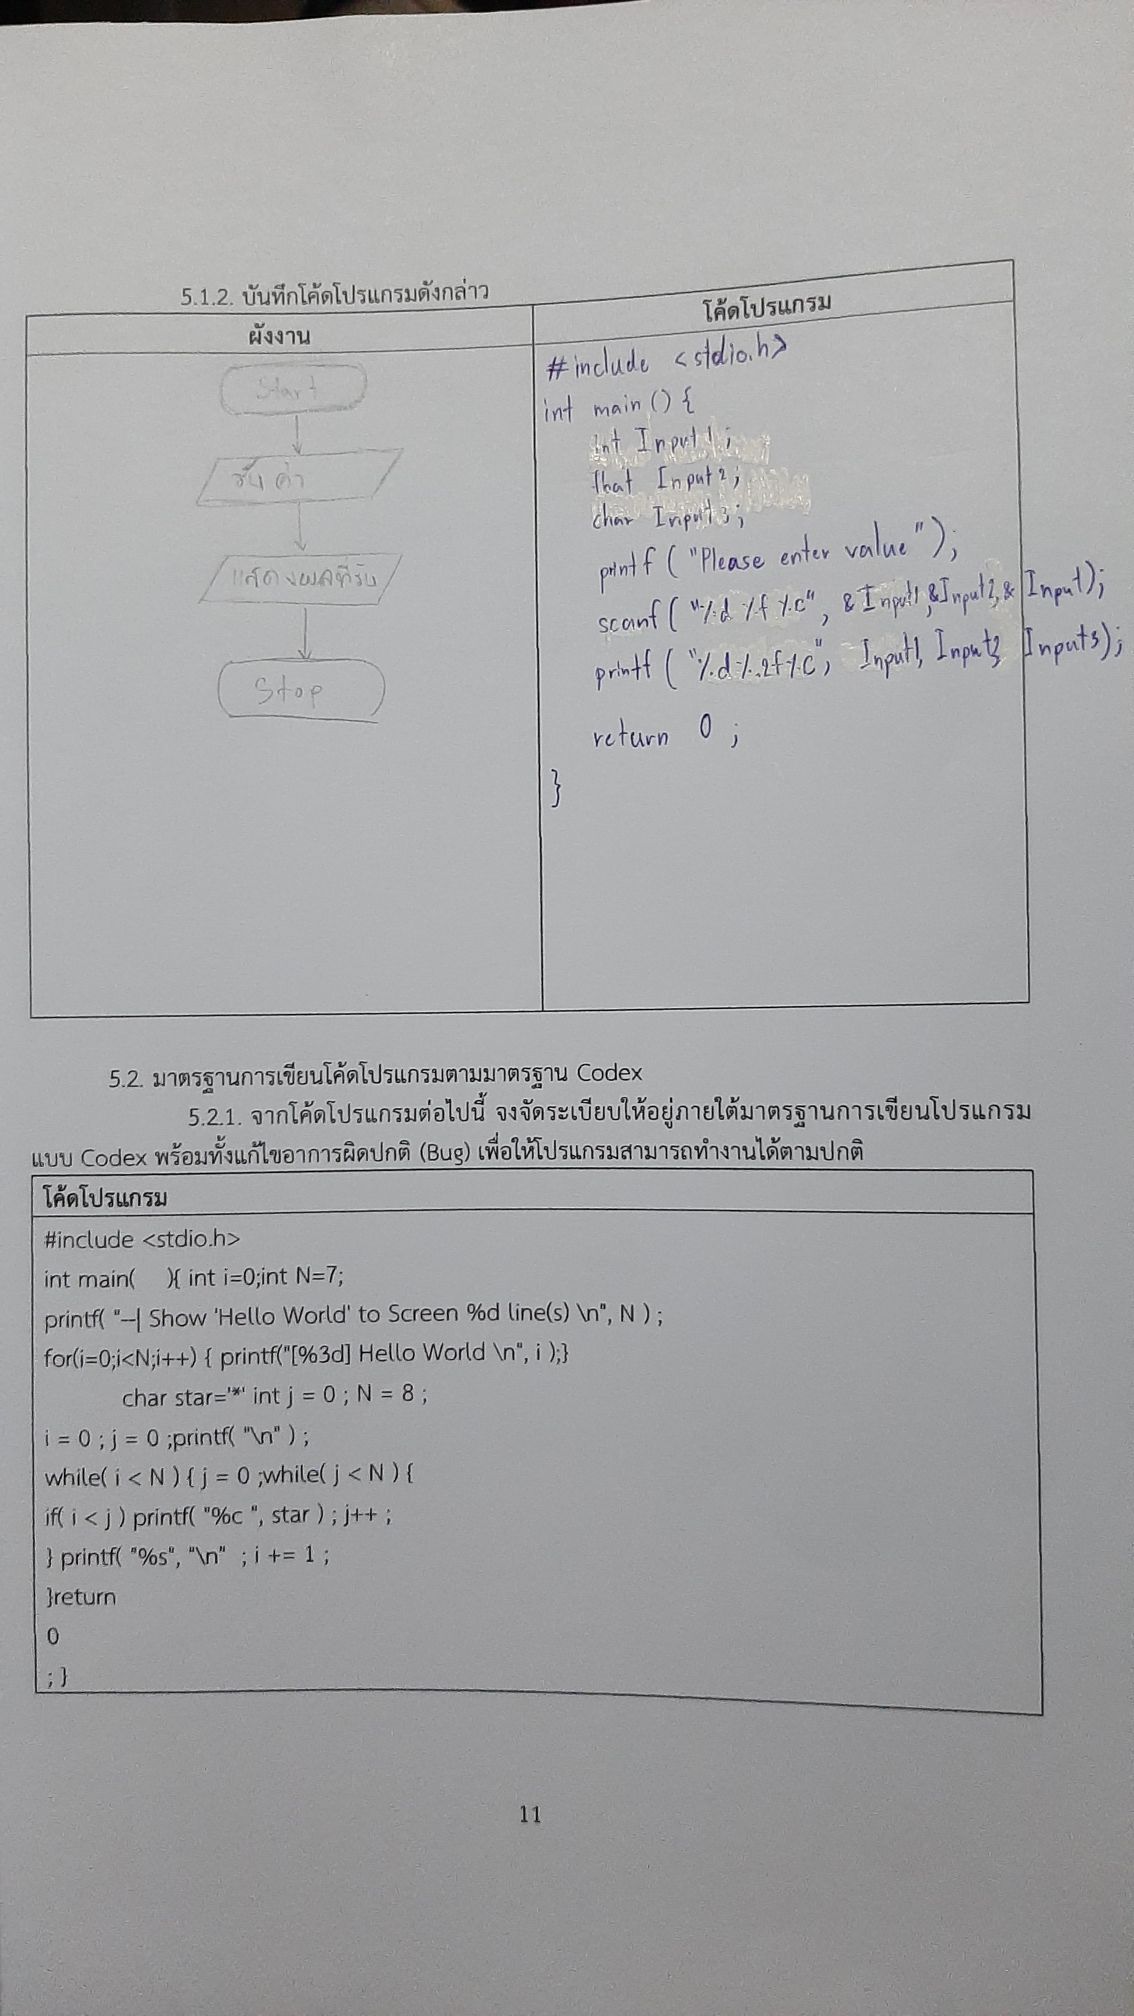 5.1.2. บันทึกโค้ดโปรแกรมดังกล่าว
ผังงาน
โค้ดโปรแกรม
Start
รับค่า
แสดงผลที่รับ
Stop
#include <stdio.h>
int main () {
int Input1;
float Input2;
char Input3;
printf ("Please enter value");
scanf ("%d %f %c", &Input1,&Input2,& Input);
printf ("%d %.2f%c", Input1, Input2, Input3);
return 0 ;
}
5.2. มาตรฐานการเขียนโค้ดโปรแกรมตามมาตรฐาน Codex
5.2.1. จากโค้ดโปรแกรมต่อไปนี้ จงจัดระเบียบให้อยู่ภายใต้มาตรฐานการเขียนโปรแกรม
แบบ Codex พร้อมทั้งแก้ไขอาการผิดปกติ (Bug) เพื่อให้โปรแกรมสามารถทำงานได้ตามปกติ
โค้ดโปรแกรม
#include <stdio.h>
int main(    ){ int i=0;int N=7;
printf( "--| Show 'Hello World' to Screen %d line(s) \n", N ) ;
for(i=0;i<N;i++) { printf("[%3d] Hello World \n", i );}
char star='*' int j = 0 ; N = 8 ;
i = 0 ; j = 0 ;printf( "\n" ) ;
while( i < N ) { j = 0 ;while( j < N ) {
if( i < j ) printf( "%c ", star ) ; j++ ;
} printf( "%s", "\n"  ; i += 1 ;
}return
0
; }
11